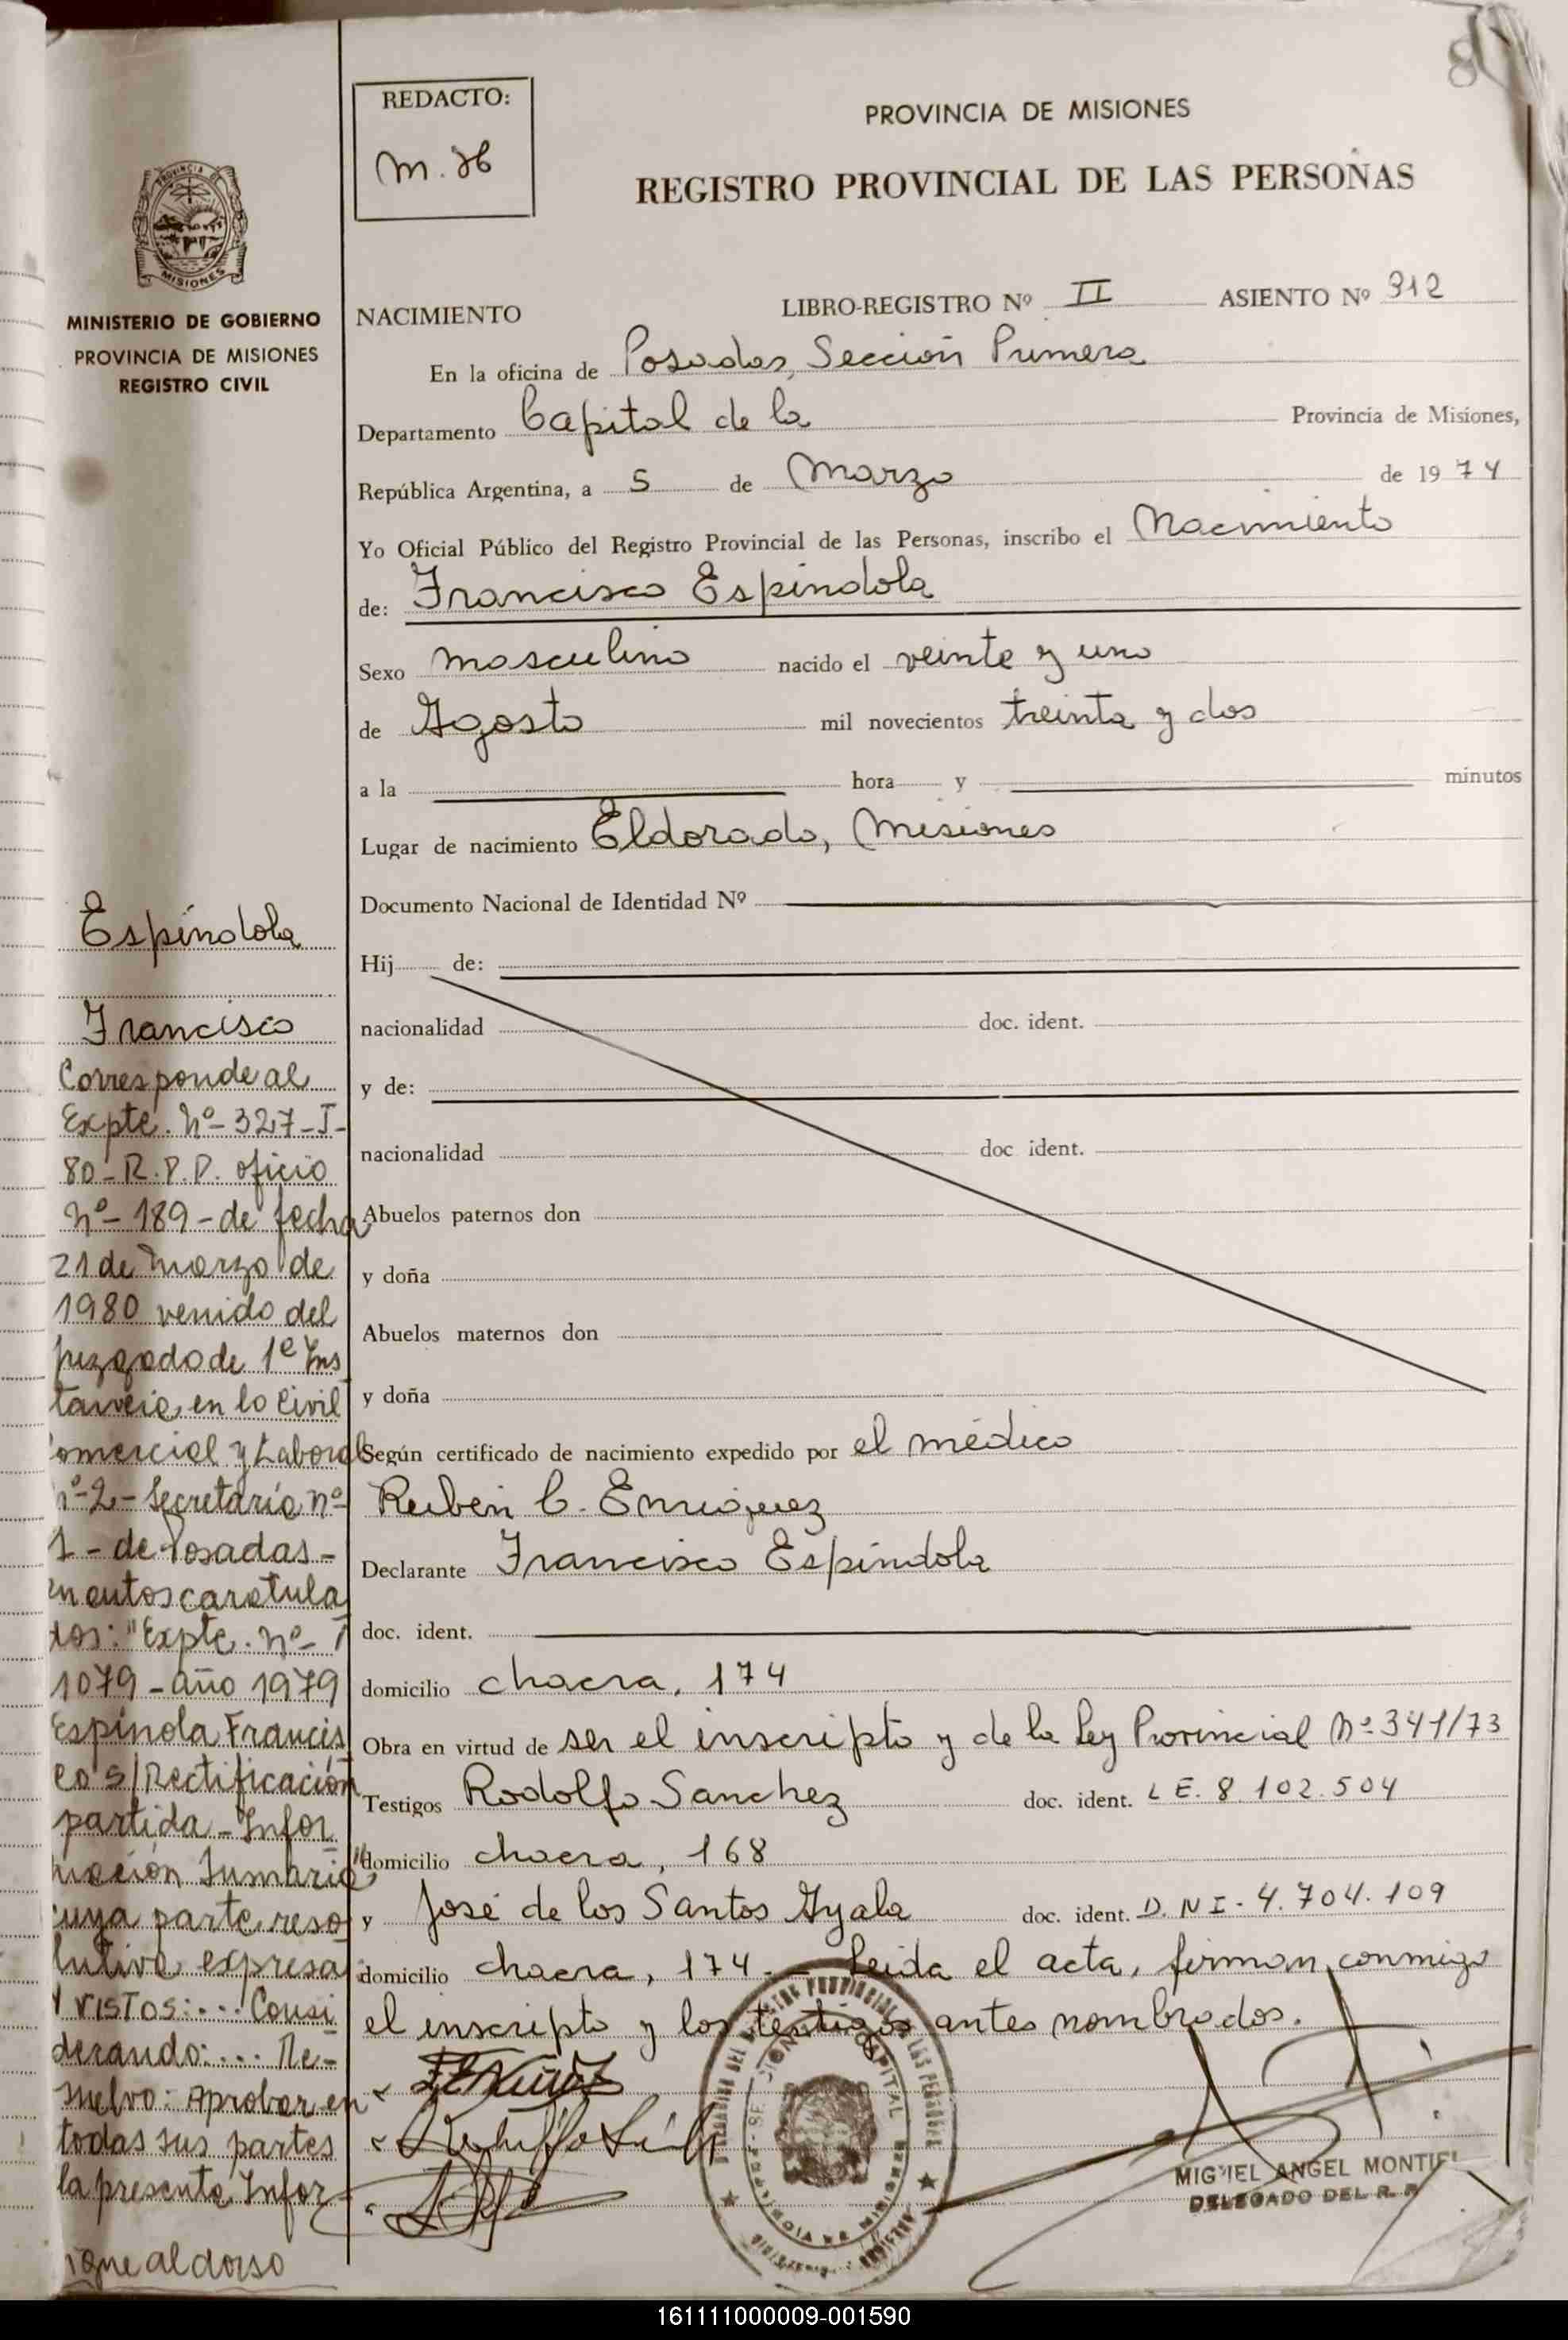 REDACTO:
PROVINCIA DE MISIONES
REGISTRO PROVINCIAL DE LAS PERSONAS
PROVINCIA DE
MISIONES
MINISTERIO DE GOBIERNO
PROVINCIA DE MISIONES
REGISTRO CIVIL
NACIMIENTO LIBRO-REGISTRO Nº II ASIENTO Nº 312
En la oficina de Posadas, Sección Primera
Departamento Capital de la Provincia de Misiones,
República Argentina, a 5 de Marzo de 1974
Yo Oficial Público del Registro Provincial de las Personas, inscribo el Nacimiento
de: Francisco Espíndola
Sexo masculino nacido el veinte y uno
de Agosto mil novecientos treinta y dos
a la hora y minutos
Lugar de nacimiento Eldorado, Misiones
Documento Nacional de Identidad Nº
Hij de:
nacionalidad doc. ident.
y de:
nacionalidad doc ident.
Abuelos paternos don
y doña
Abuelos maternos don
y doña
Según certificado de nacimiento expedido por el médico
Rubén C. Enriquez
Declarante Francisco Espíndola
doc. ident.
domicilio chacra, 174
Obra en virtud de ser el inscripto y de la Ley Provincial Nº 341/73
Testigos Rodolfo Sanchez doc. ident. L E. 8.102.504
domicilio chacra, 168
y José de los Santos Ayala doc. ident. D. N I - 4.704.109
domicilio chacra, 174.— Leida el acta, firman conmigo
el inscripto y los testigos antes nombrados.
MIGUEL ANGEL MONTIEL
DELEGADO DEL R. P.
Espíndola
Francisco
Corresponde al
Expte. Nº- 327-I-
80- R.P.P. oficio
Nº- 189 - de fecha
21 de Marzo de
1980 venido del
juzgado de 1º Ins
tancia en lo Civil
Comercial y Laboral
nº-2- Secretaría nº
1 - de Posadas -
en autos caratula
dos: "Expte. nº-
1079 - año 1979
Espínola Francis
co s/ Rectificación
partida - Infor
mación Sumaria"
cuya parte reso
lutiva expresa
Y VISTOS: ... Consi
derando: ... Re-
suelvo: Aprobar en
todas sus partes
la presente Infor
sigue al dorso
161111000009-001590